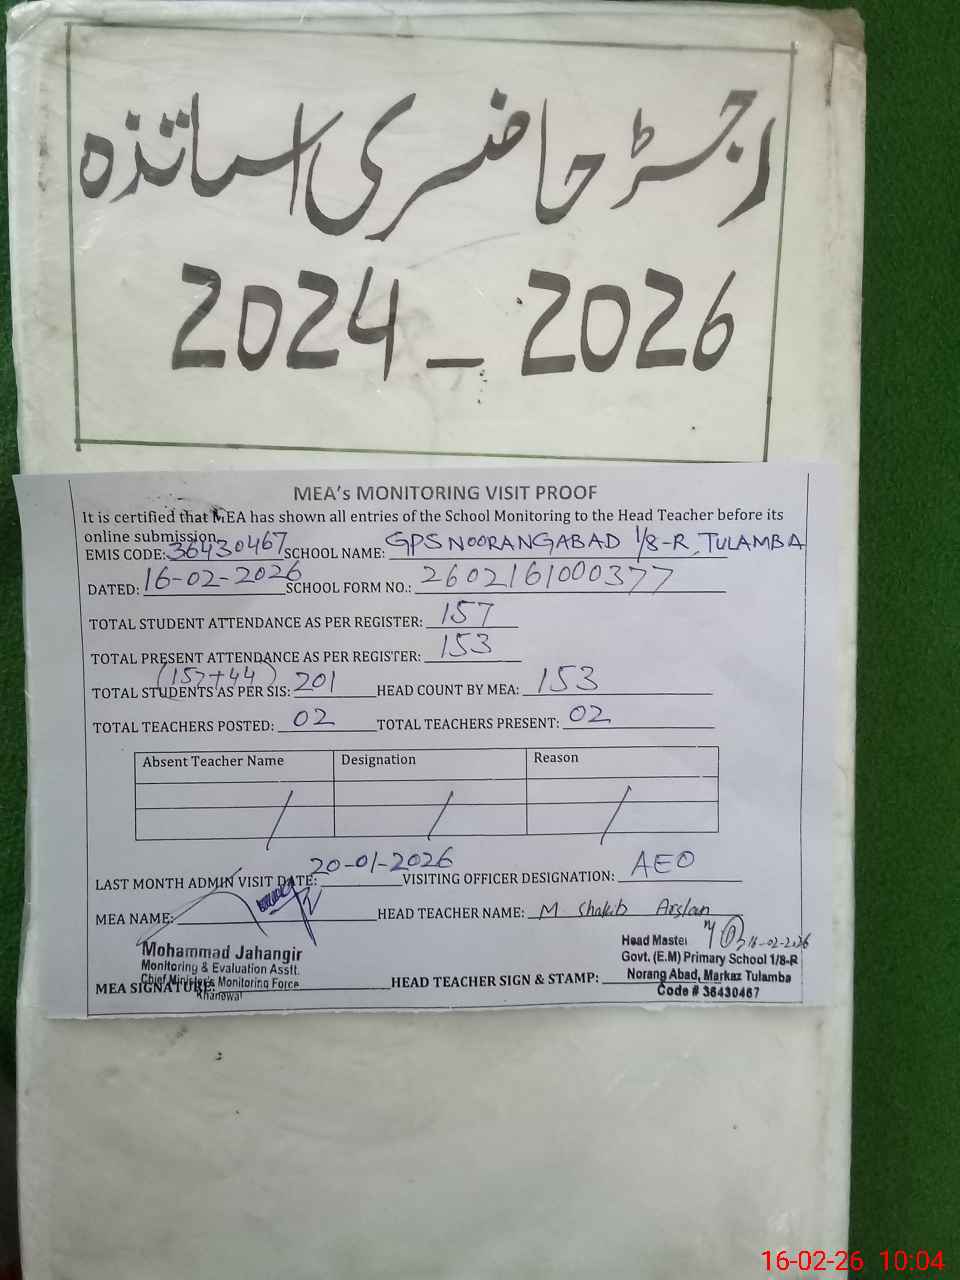 رجسٹر حاضری اساتذہ
2024 – 2026
MEA's MONITORING VISIT PROOF
It is certified that MEA has shown all entries of the School Monitoring to the Head Teacher before its
online submission.
EMIS CODE: 36430467 SCHOOL NAME: GPS NOORANGABAD 1/8-R, TULAMBA
DATED: 16-02-2026 SCHOOL FORM NO.: 2602161000377
TOTAL STUDENT ATTENDANCE AS PER REGISTER: 157
TOTAL PRESENT ATTENDANCE AS PER REGISTER: 153
(157+44)
TOTAL STUDENTS AS PER SIS: 201 HEAD COUNT BY MEA: 153
TOTAL TEACHERS POSTED: 02 TOTAL TEACHERS PRESENT: 02
Absent Teacher Name Designation Reason
/ / /
LAST MONTH ADMIN VISIT DATE: 20-01-2026 VISITING OFFICER DESIGNATION: AEO
MEA NAME: HEAD TEACHER NAME: M Shakib Arslan
16-02-2026
Mohammad Jahangir
Monitoring & Evaluation Asstt.
Chief Minister's Monitoring Force
Khanewal
MEA SIGNATURE: HEAD TEACHER SIGN & STAMP:
Head Master
Govt. (E.M) Primary School 1/8-R
Norang Abad, Markaz Tulamba
Code # 36430467
16-02-26 10:04